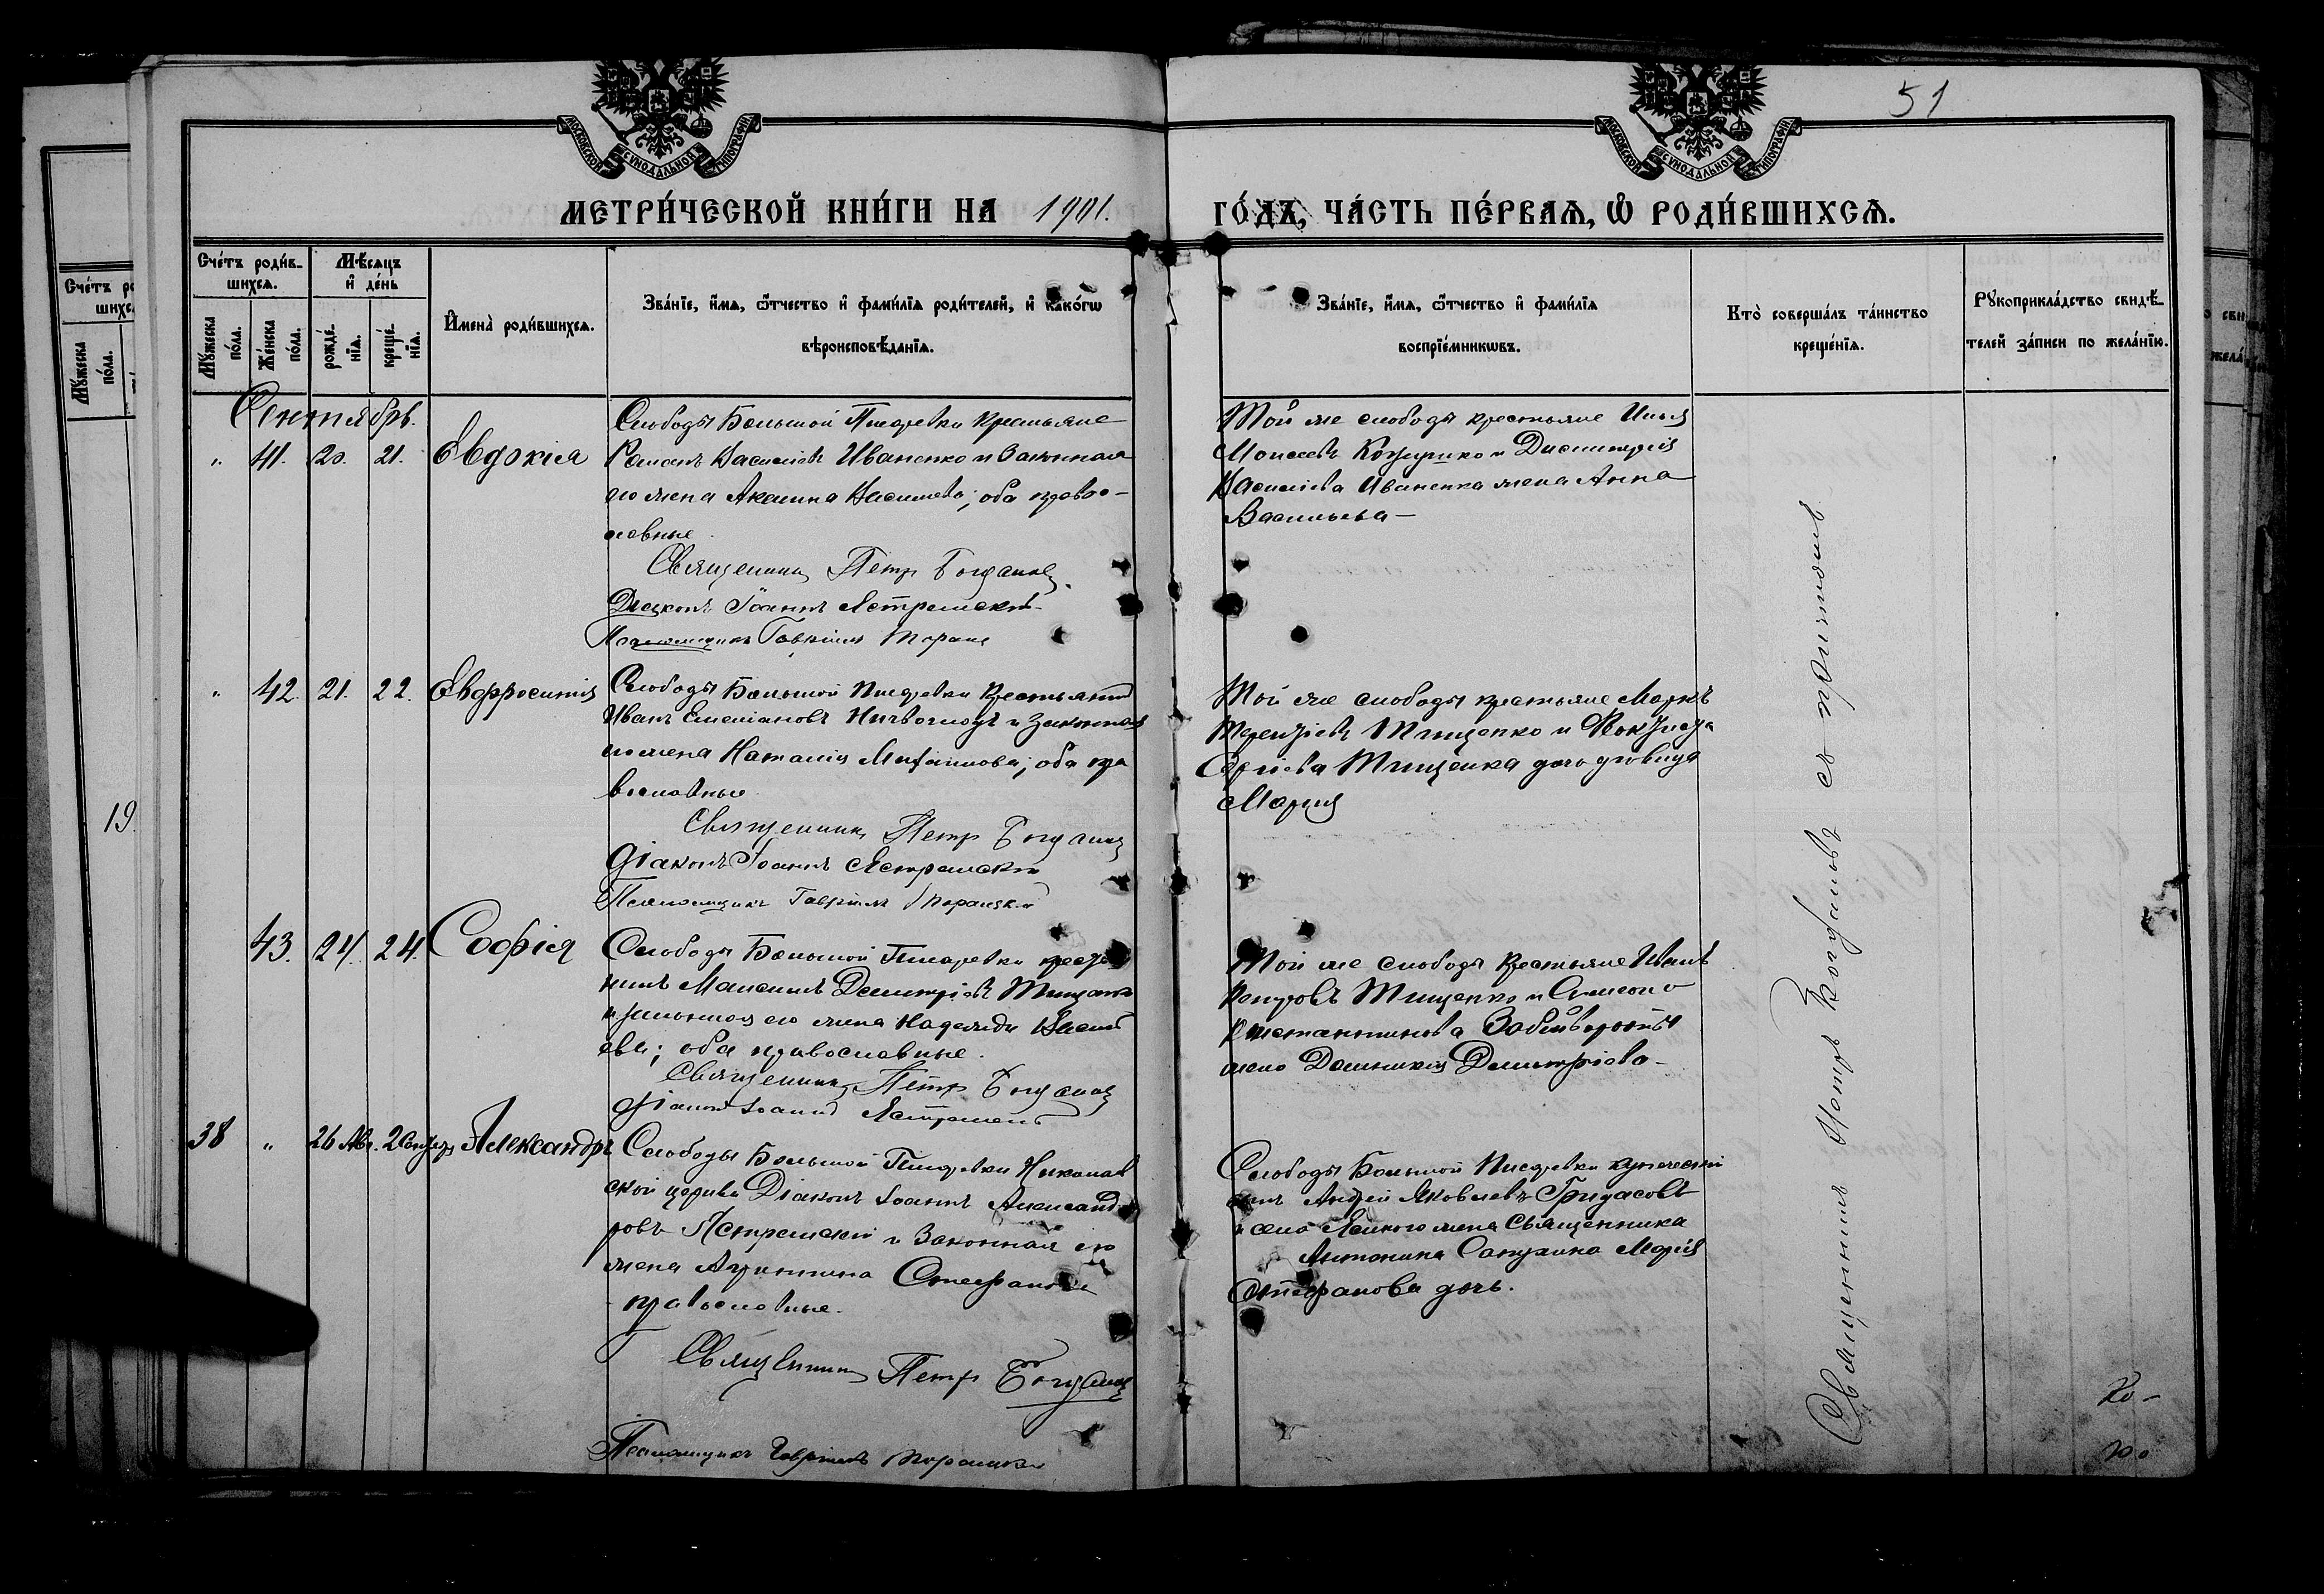 51
МОСКОВСКОЙ СѴНОДАЛЬНОЙ ТИПОГРАФІИ
МОСКОВСКОЙ СѴНОДАЛЬНОЙ ТИПОГРАФІИ
МЕТРИ́ЧЕСКОЙ КНИ́ГИ НА 1901.
ГО́ДЪ, ЧА́СТЬ ПЕ́РВАѦ, Ѡ РОДИ́ВШИХСѦ.
Сче́тъ роди́вшихсѧ.
Мꙋ́жеска по́ла.
Же́нска по́ла.
Мѣ́сѧцъ и҆ де́нь
рожде́нїѧ.
креще́нїѧ.
И҆мена̀ роди́вшихсѧ.
Зва́нїе, и҆́мѧ, ѻ҆́тчество и҆ фами́лїѧ роди́телей, и҆ како́гѡ
вѣроисповѣ́данїѧ.
Зва́нїе, и҆́мѧ, ѻ҆́тчество и҆ фами́лїѧ
воспрїе́мникѡвъ.
Кто̀ соверша́лъ та́инство
креще́нїѧ.
Рꙋкоприкла́дство свидѣ́-
телей за́писи по жела́нїю.
Сентябрь.
" 41. 20. 21. Евдокія
Слободы Большой Писаревки крестьяне
Романъ Василіевъ Иваненко и законная
его жена Акилина Василіева; оба право-
славные.
Священникъ Петръ Богдановъ
Діаконъ Іоаннъ Ястремскій
Псаломщикъ Гавріилъ
Той же слободы крестьяне Илья
Моисеевъ и Димитрія
Василіева Иваненка жена Анна
Васильева —
" 42. 21. 22. Евфросинія
Слободы Большой Писаревки крестьянинъ
Иванъ Емеліановъ и законная
его жена Наталія Михаилова; оба пра
вославные.
Священникъ Петръ Богдановъ
Діаконъ Іоаннъ Ястремскій
Псаломщикъ Гавріилъ
Той же слободы крестьяне Маркъ
Терентіевъ Тищенко и
Сергіева Тищенка дочь дѣвица
Марія
43. 24. 24. Софія
Слободы Большой Писаревки крестья
нинъ Максимъ Димитріевъ Тищенко
и законная его жена Надежда Василі
ева; оба православные.
Священникъ Петръ Богдановъ
Діаконъ Іоаннъ Ястремскій
Той же слободы крестьяне Иванъ
Тищенко и Симеона
Константинова
жена Домникія Димитріева —
38 " 26 Авг. 2 Сентяб. Александръ
Слободы Большой Писаревки Николаев
ской церкви Діаконъ Іоаннъ Александ
ровъ Ястремскій и законная его
жена Стефанова
православные.
Священникъ Петръ Богдановъ
Псаломщикъ Гавріилъ
Слободы Большой Писаревки купеческій
сынъ Андрей Яковлевъ Гридасовъ
и села жена Священника
Антонина Марія
Стефанова дочь.
Священникъ Петръ Богдановъ съ причтомъ
19.